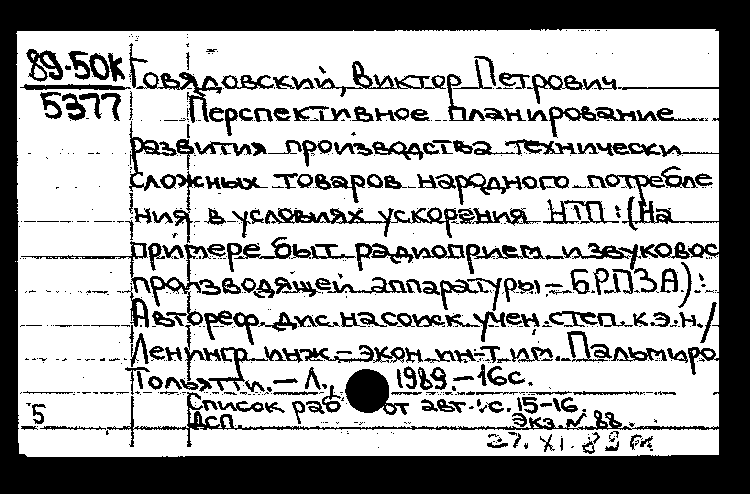 89-50к Говядовский, Виктор Петрович
5377 Перспективное планирование
развития производства технически
сложных товаров народного потребле
ния в условиях ускорения НТП : (На
примере быт. радиоприем. и звуковос
производящей аппаратуры - БРПЗА) :
Автореф. дис. на соиск. учен. степ. к.э.н. /
Ленингр. инж.-экон. ин-т им. Пальмиро
Тольятти. - Л., 1989. - 16 с.
Список раб от авт.: с. 15-16
5 Дсп. Экз. N 88.
27. XI. 89